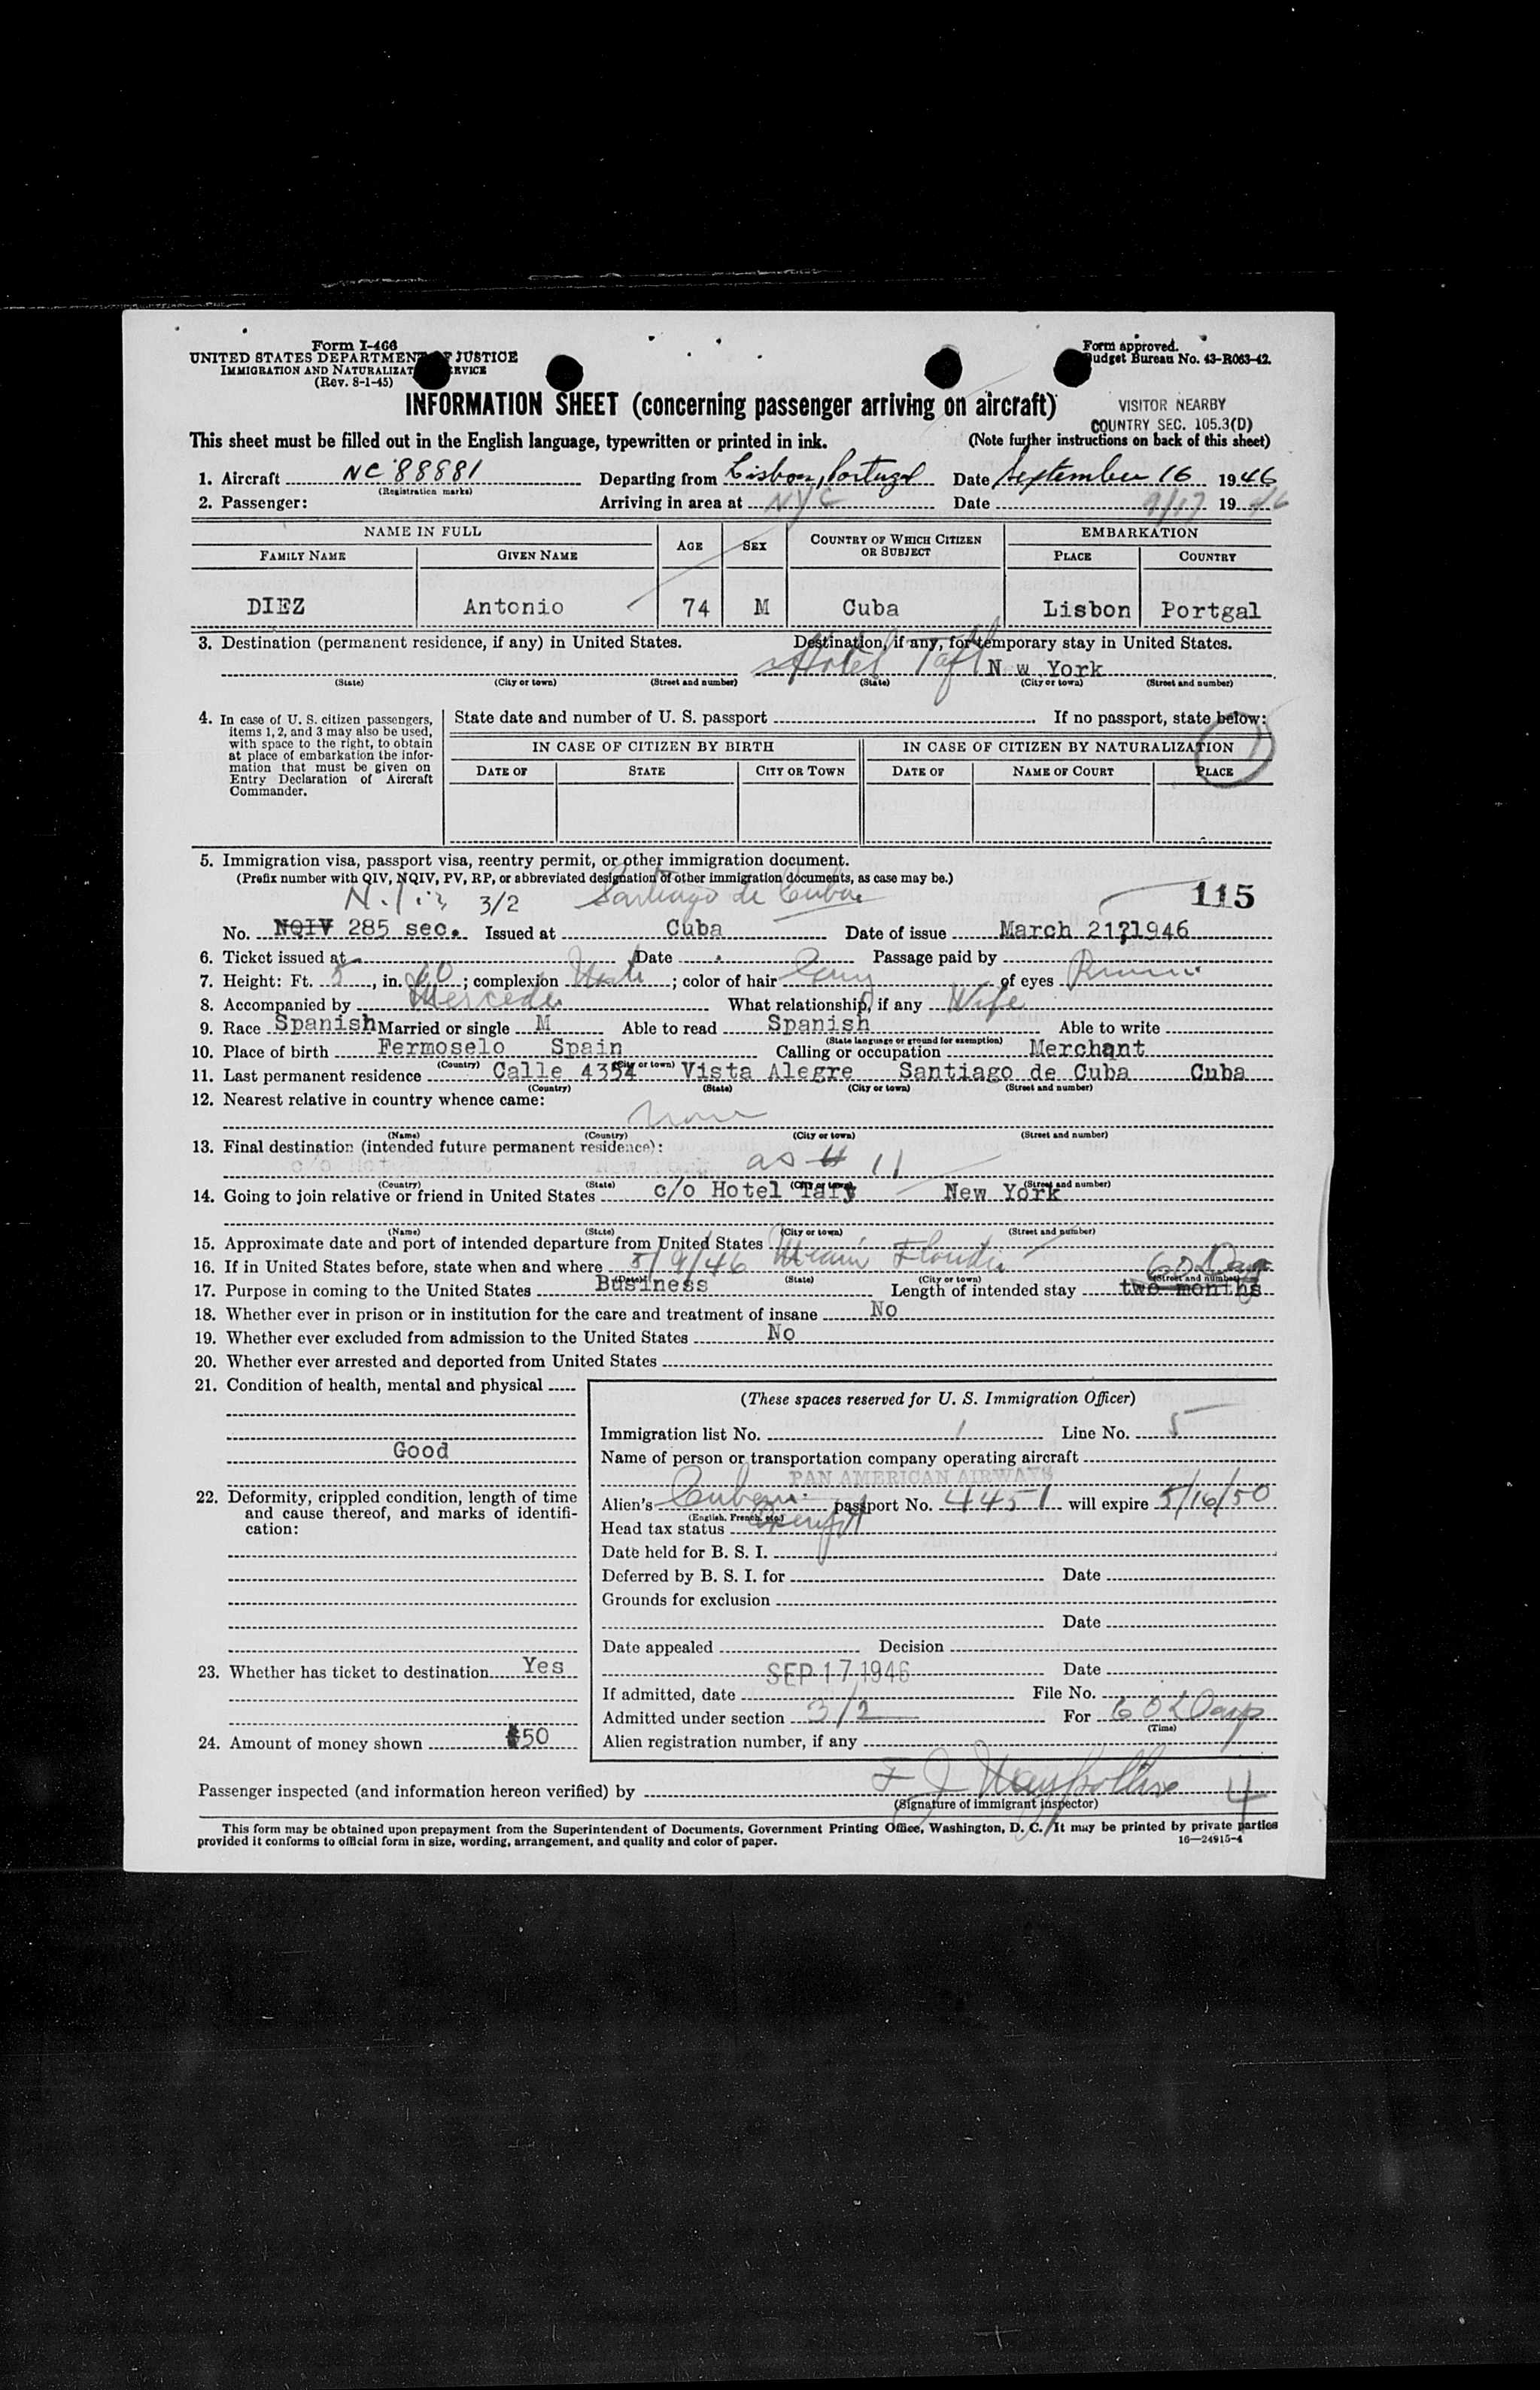 Form I-466
UNITED STATES DEPARTMENT OF JUSTICE
IMMIGRATION AND NATURALIZATION SERVICE
(Rev. 8-1-45)
Form approved.
Budget Bureau No. 43-R063-42.
INFORMATION SHEET (concerning passenger arriving on aircraft)
VISITOR NEARBY
COUNTRY SEC. 105.3(D)
This sheet must be filled out in the English language, typewritten or printed in ink. (Note further instructions on back of this sheet)
1. Aircraft NC 88881 Departing from Lisbon, Portugal Date September 16 1946
(Registration marks)
2. Passenger: Arriving in area at NYC Date 9/17 1946
NAME IN FULL AGE SEX COUNTRY OF WHICH CITIZEN OR SUBJECT EMBARKATION
FAMILY NAME GIVEN NAME PLACE COUNTRY
DIEZ Antonio 74 M Cuba Lisbon Portgal
3. Destination (permanent residence, if any) in United States. Destination, if any, for temporary stay in United States.
Hotel Taft N w York
(State) (City or town) (Street and number) (State) (City or town) (Street and number)
4. In case of U. S. citizen passengers, items 1, 2, and 3 may also be used, with space to the right, to obtain at place of embarkation the information that must be given on Entry Declaration of Aircraft Commander.
State date and number of U. S. passport If no passport, state below:
IN CASE OF CITIZEN BY BIRTH IN CASE OF CITIZEN BY NATURALIZATION
DATE OF STATE CITY OR TOWN DATE OF NAME OF COURT PLACE
5. Immigration visa, passport visa, reentry permit, or other immigration document.
(Prefix number with QIV, NQIV, PV, RP, or abbreviated designation of other immigration documents, as case may be.)
3/2 Santiago de Cuba 115
No. NQIV 285 sec. Issued at Cuba Date of issue March 21?1946
6. Ticket issued at Date Passage paid by
7. Height: Ft. 5, in. ; complexion ; color of hair Grey of eyes
8. Accompanied by Mercedes What relationship, if any Wife
9. Race Spanish Married or single M Able to read Spanish Able to write
(State language or ground for exemption)
10. Place of birth Fermoselo Spain Calling or occupation Merchant
(Country) (City or town)
11. Last permanent residence Calle 4354 Vista Alegre Santiago de Cuba Cuba
(Country) (State) (City or town) (Street and number)
12. Nearest relative in country whence came:
None
(Name) (Country) (City or town) (Street and number)
13. Final destination (intended future permanent residence):
as # 11
(Country) (State) (City or town) (Street and number)
14. Going to join relative or friend in United States c/o Hotel Taft New York
(Name) (State) (City or town) (Street and number)
15. Approximate date and port of intended departure from United States
16. If in United States before, state when and where 5/9/46 Miami Florida 60 Days
(Date) (State) (City or town) (Street and number)
17. Purpose in coming to the United States Business Length of intended stay two months
18. Whether ever in prison or in institution for the care and treatment of insane No
19. Whether ever excluded from admission to the United States No
20. Whether ever arrested and deported from United States
21. Condition of health, mental and physical
Good
22. Deformity, crippled condition, length of time and cause thereof, and marks of identification:
23. Whether has ticket to destination Yes
24. Amount of money shown $50
(These spaces reserved for U. S. Immigration Officer)
Immigration list No. 1 Line No. 5
Name of person or transportation company operating aircraft
PAN AMERICAN AIRWAYS
Alien's Cuban passport No. 4451 will expire 5/16/50
(English, French, etc.)
Head tax status Exempt
Date held for B. S. I.
Deferred by B. S. I. for Date
Grounds for exclusion
Date
Date appealed Decision
SEP 17 1946 Date
If admitted, date File No.
Admitted under section 3/2 For 60 Days
(Time)
Alien registration number, if any
Passenger inspected (and information hereon verified) by F J 4
(Signature of immigrant inspector)
This form may be obtained upon prepayment from the Superintendent of Documents, Government Printing Office, Washington, D. C. It may be printed by private parties
provided it conforms to official form in size, wording, arrangement, and quality and color of paper. 16—24915-4